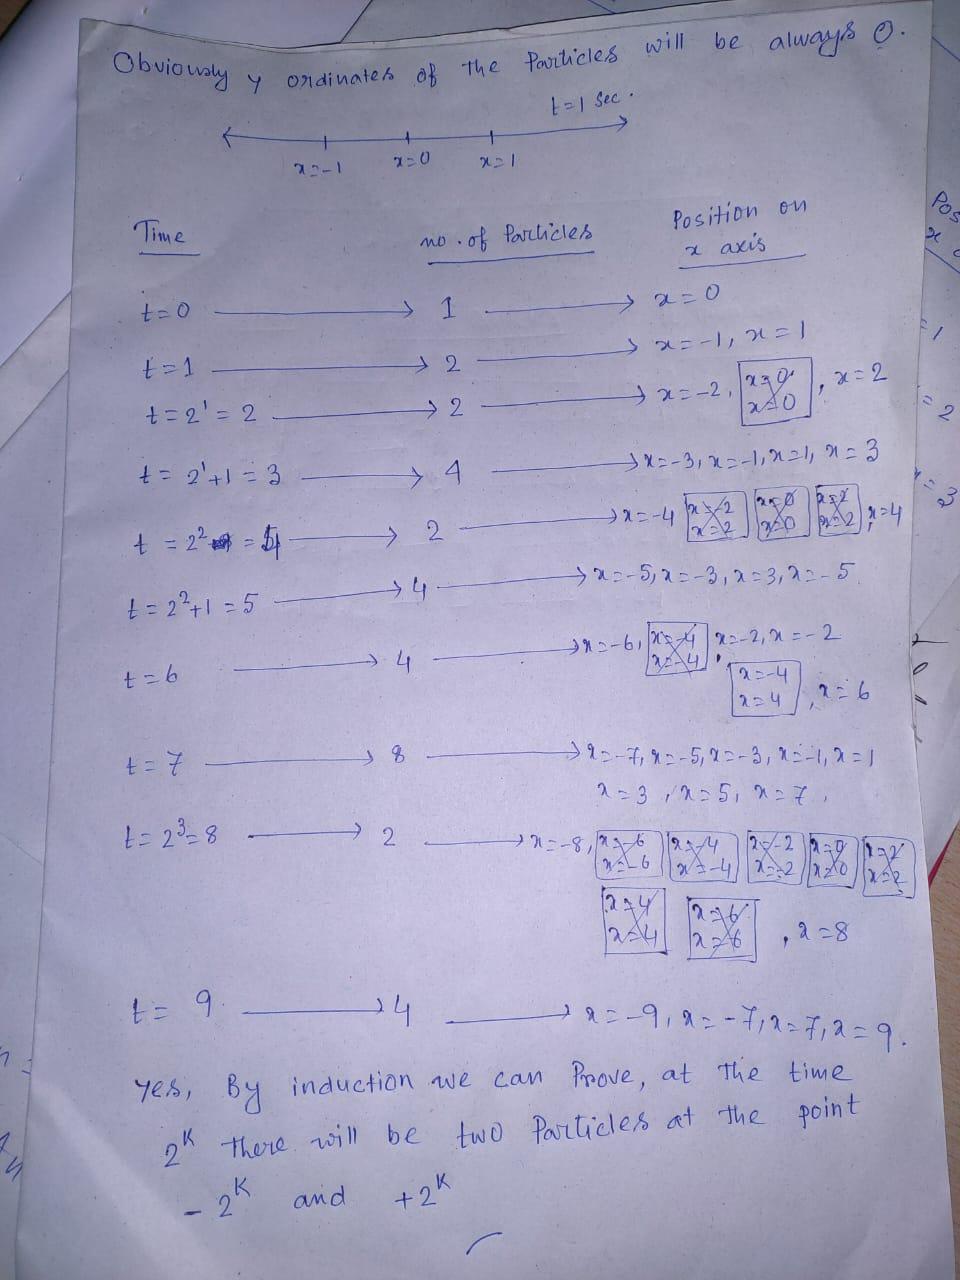 Obviously y ordinates of the Particles will be always 0.
t=1 Sec.
x=-1 x=0 x=1
Time no. of Particles Position on
x axis
t=0 → 1 → x=0
t=1 → 2 → x=-1, x=1
t=2¹=2 → 2 → x=-2, x=0 x=0, x=2
t= 2¹+1=3 → 4 → x=-3, x=-1, x=1, x=3
t = 2² = 4 → 2 → x=-4 x=-2 x=-2 x=0 x=0 x=2 x=2, x=4
t=2²+1=5 → 4 → x=-5, x=-3, x=3, x=-5
t=6 → 4 → x=-6, x=-4 x=-4, x=-2, x=-2
x=-4 x=4, x=6
t=7 → 8 → x=-7, x=-5, x=-3, x=-1, x=1
x=3, x=5, x=7,
t=2³=8 → 2 → x=-8, x=-6 x=-6 x=-4 x=-4 x=-2 x=-2 x=0 x=0 x=2 x=2
x=4 x=4 x=6 x=6, x=8
t= 9 → 4 → x=-9, x=-7, x=7, x=9.
Yes, By induction we can Prove, at the time
2ᴷ there will be two Particles at the point
-2ᴷ and +2ᴷ